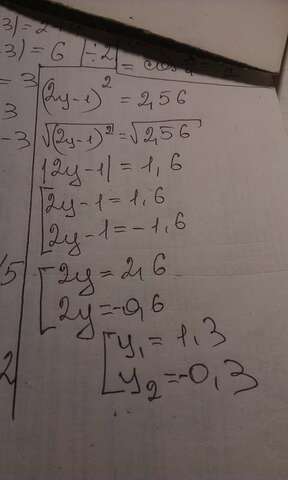 3| = 2
-3) = 6 | ÷2|
= 3
3
-3
(2y-1)² = 2,56
√(2y-1)² = √2,56
|2y-1| = 1,6
[2y-1 = 1,6
2y-1 = -1,6
[2y = 2,6
2y = -0,6
[y₁ = 1,3
y₂ = -0,3
15
2